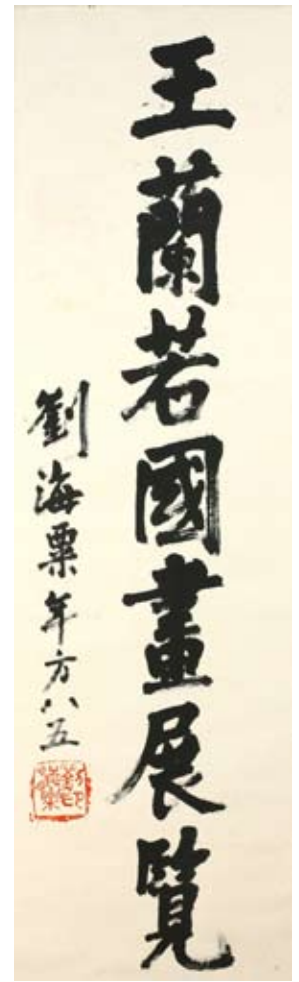 王蘭若國畫展覽
劉海粟年方八五